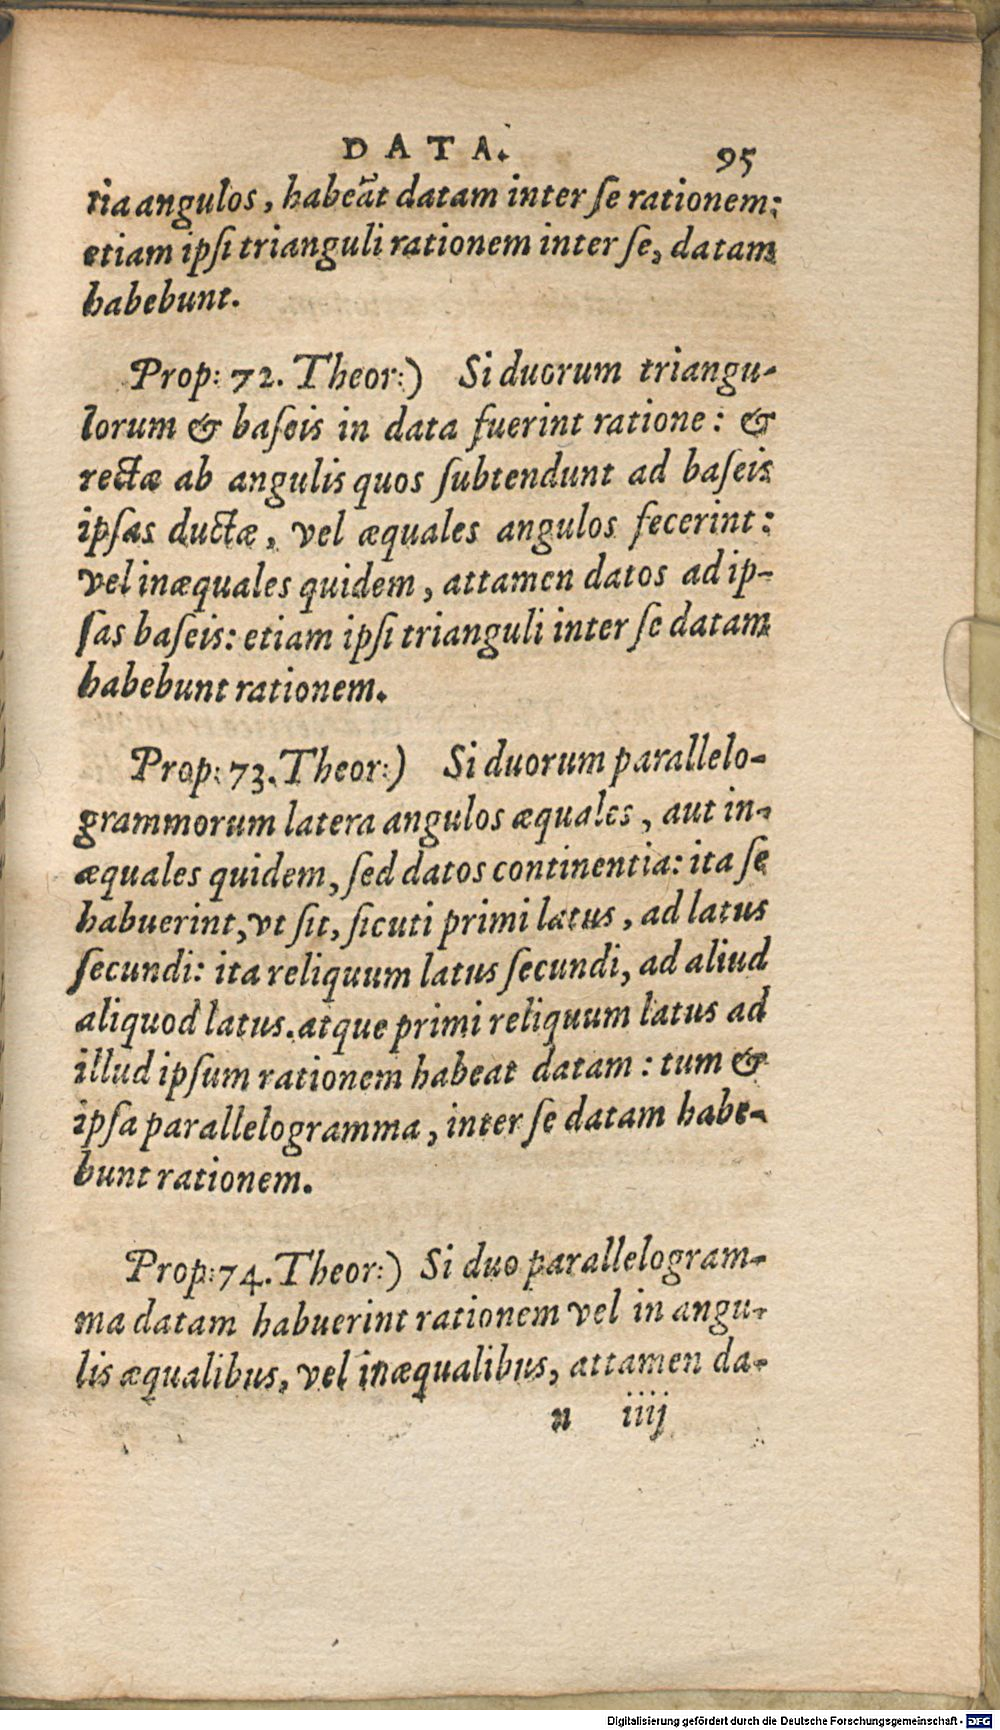 DATA. 95
tia angulos, habeāt datam inter ſe rationem:
etiam ipſi trianguli rationem inter ſe, datam
habebunt.
Prop: 72. Theor:) Si duorum triangu-
lorum & baſeis in data fuerint ratione: &
rectæ ab angulis quos ſubtendunt ad baſeis
ipſas ductæ, vel æquales angulos fecerint:
vel inæquales quidem, attamen datos ad ip-
ſas baſeis: etiam ipſi trianguli inter ſe datam
habebunt rationem.
Prop: 73. Theor:) Si duorum parallelo-
grammorum latera angulos æquales, aut in-
æquales quidem, ſed datos continentia: ita ſe
habuerint, vt ſit, ſicuti primi latus, ad latus
ſecundi: ita reliquum latus ſecundi, ad aliud
aliquod latus. atque primi reliquum latus ad
illud ipſum rationem habeat datam: tum &
ipſa parallelogramma, inter ſe datam habe-
bunt rationem.
Prop: 74. Theor:) Si duo parallelogram-
ma datam habuerint rationem vel in angu-
lis æqualibus, vel inæqualibus, attamen da-
n iiij
Digitalisierung gefördert durch die Deutsche Forschungsgemeinschaft - DFG